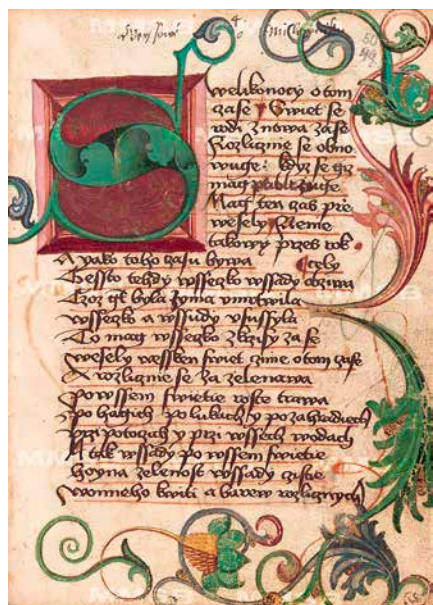 S
welikonocy o tom
zase Swiet se
rodi znowa zase
Rozlicznie se obno
wuge: kdyz se giz
mag
Mag ten czas prze
wesely Neme
takowy przes rok
A yako toho czasu bywa cely
Hessto tehdy wssezko wssady oziwa
Czoz gt byla zyma vmotwila
wssezko a wssudy vsussyla
To mag wssezko zkrzisy zase
wesely wessken swiet czime o tom czase
A rozlicznie se za zelenawa
po wssem swietie roste trawa
po hagich po lukach y po zahradiech
przi potoczich y przi wssech wodach
A tak wssady po wssem swietie
hoyna zelenost wssady
wonneho kwiti a barew rozlicznych